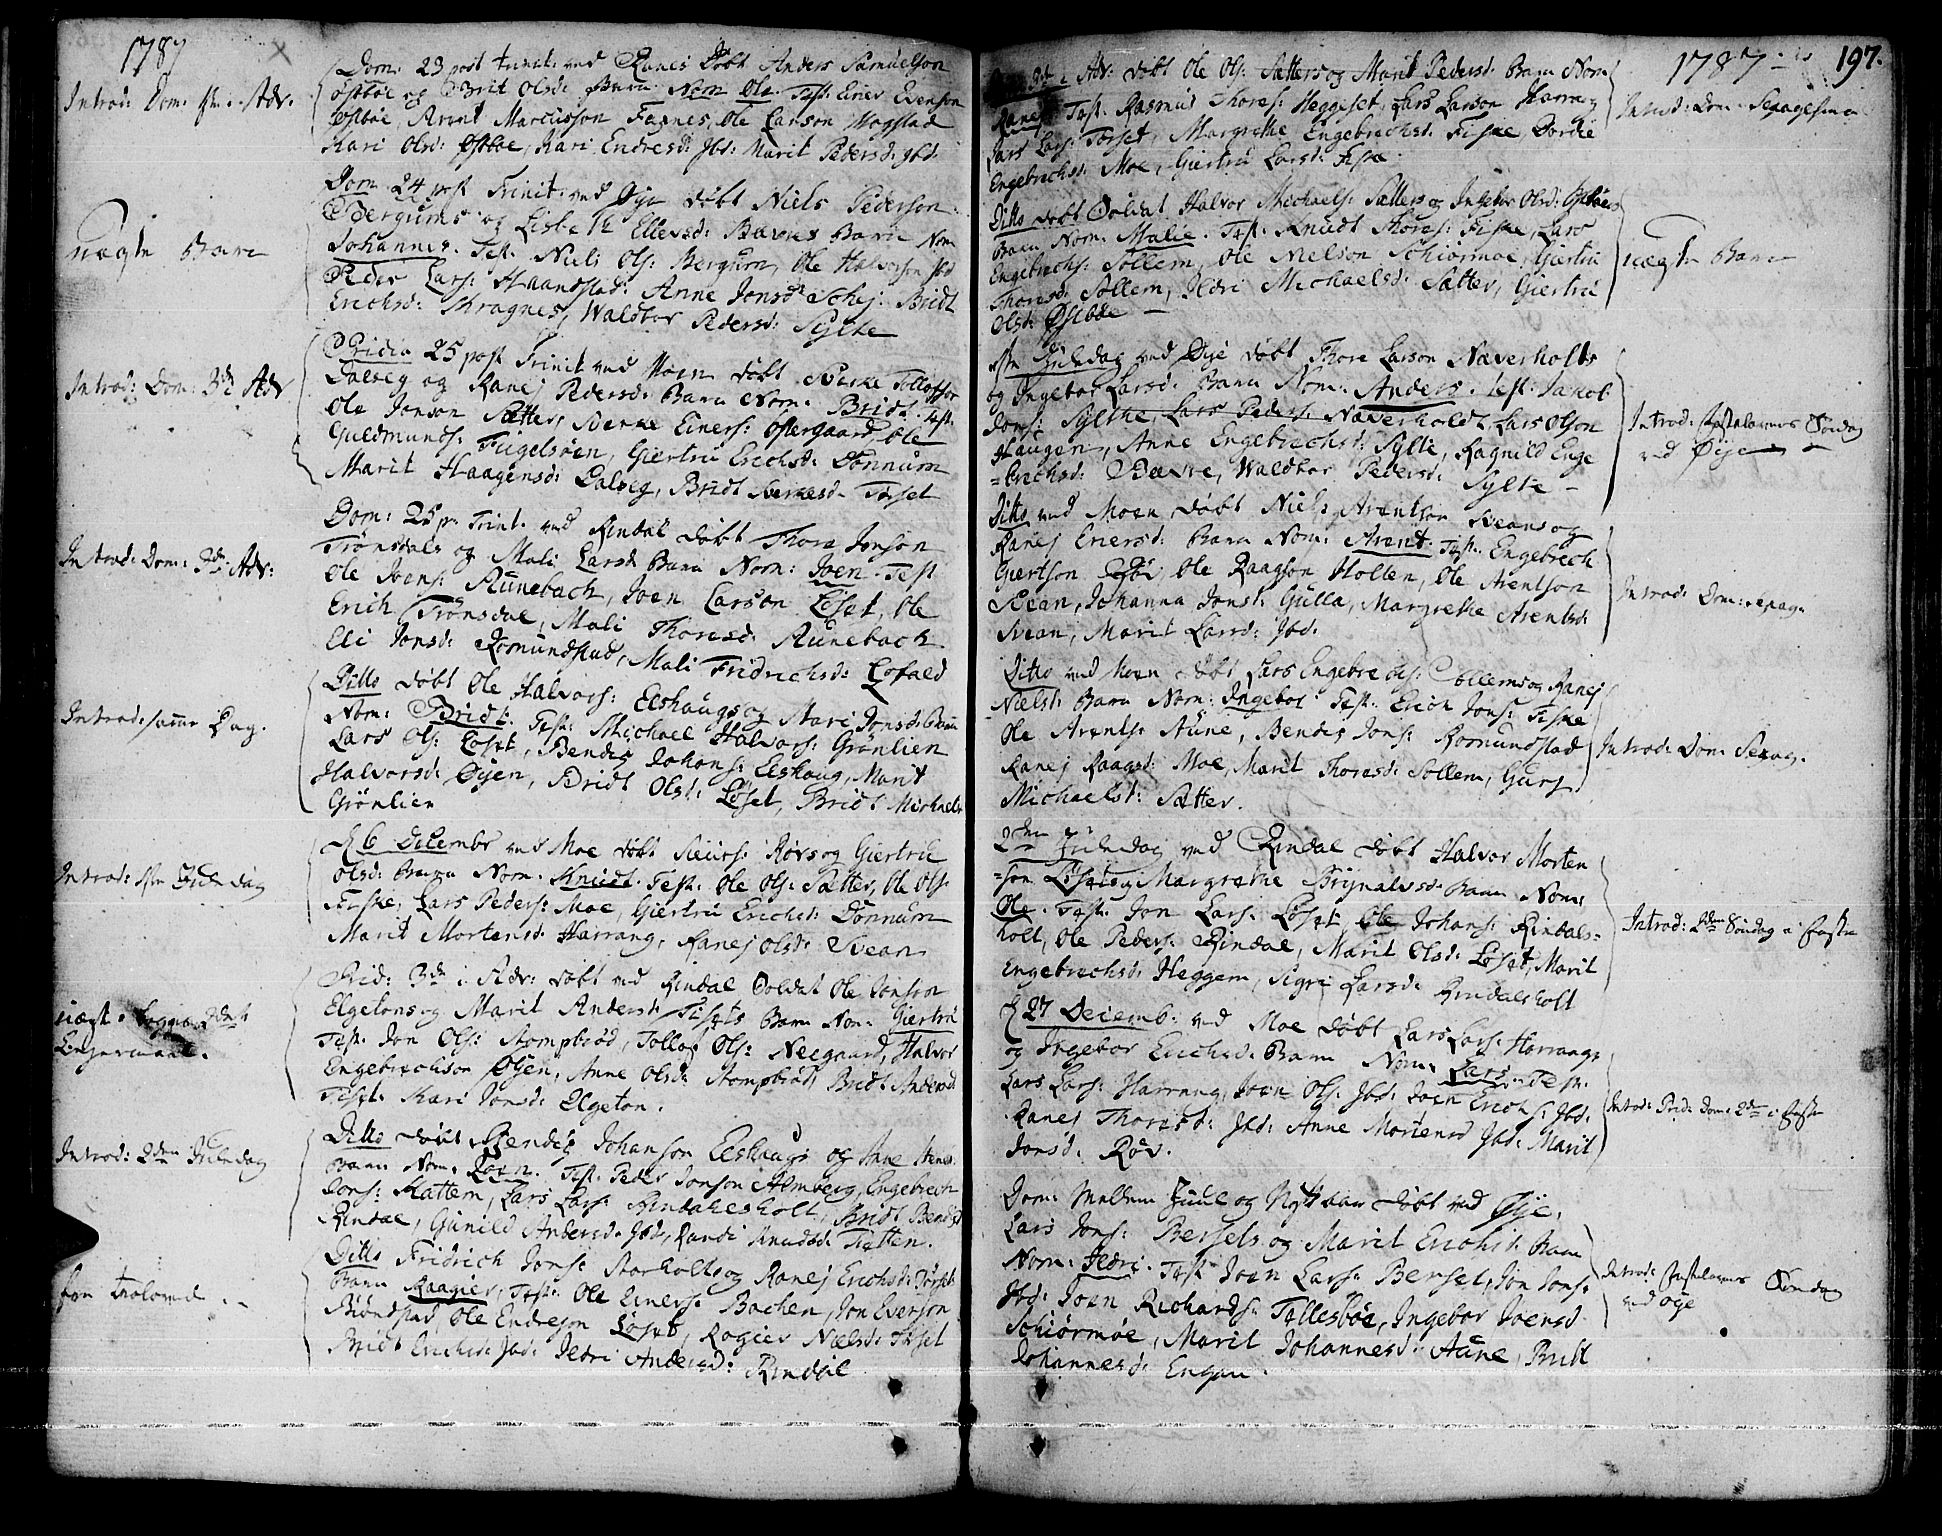 1787
Introd: Dom: 1ste Adv.
Dom: 23 post trinit: ved Ranes Døbt Anders Samuelson
Østbøe og Brit Olsd: Barn Nom Ole. Test: Einer Evenson
Østbøe, Arent Marcusson Fagnes, Ole Larson Mogstad
Kari Olsd: Østbøe, Kari Endresd: Ibd: Marit Pedersd: ibd.
uægte Barn
Dom 24 post Trinit: ved Øye døbt Niels Pederson
Bergums og Lisbeth Ellevsd: Bævres Barn Nom
Johannes. Test. Niels Ols: Bergum, Ole Halvorson Ibd
Peder Lars: Haandstad: Anne Jonsdr Schej: Bridt
Erichsd: Kragnes, Waldbor Pedersd: Sylte
Introd: Dom: 3de Adv
Pridie 25 post Trinit ved Moen døbt Sverke Tollofson
Dalseg og Ranej Pedersd: Barn Nom: Bridt. Test:
Ole Jonson Sætter, Sverke Einers: Ostergaard, Ole
Guldmunds: Fugelsøen, Giertru Erichsd: Dønnum
Marit Haagensd: Dalseg, Bridt Sverkesd: Torset
Introd: Dom: 3de Adv:
Dom: 25 p. Trinit. ved Rindal døbt Thore Jonson
Trønsdals og Mali Larsd Barn Nom: Joen. Test
Ole Joens: Aunebach, Joen Larson Løset, Ole
Erich Trønsdal, Mali Thoresd: Aunebach
Eli Jonsd: Romundstad, Mali Fridrichsd: Løfald
Introd: samme Dag.
Ditto døbt Ole Halvors: Eeshaugs og Mari Jonsd: Barn
Nom: Bridt. Test: Michael Halvors: Grønlien
Lars Ols: Løset, Bendig Johans: Eeshaug, Marit
Halvorsd: Øyen, Bridt Olsd: Løset, Bridt Michaels
Grønlien
Introd: 1ste Juledag
D 6 Decembr ved Moe døbt Siurs: Røvs og Giertrue
Olsd: Barn Nom: Knudt. Test: Ole Ols: Sætter, Ole Ols:
Fiske, Lars Peders: Moe, Giertru Erichsd: Dønnum
Marit Mortensd: Harrang, Ranej Olsd: Svean
uægt
Leiermaal.
Prid: 3de i Adv: døbt ved Rindal Soldat Ole Jonson
Elgetons og Marit Andersd: Fisets Barn Nom: Giertru
Test. Jon Ols: Stompbrød, Tollof Ols: Neegaard, Halvor
Engebrechson Øyen, Anne Olsd: Stompbrød, Bridt Andersd
Fiset. Kari Jonsd: Elgeton.
Introd: 2den Juledag
Ditto døbt Bendig Johanson Eeshaugs og Ane
Barn Nom: Joen. Test. Peder Jonson Almberg, Engebrech
Jons: Kattem, Lars Lars: Rindahlsholt, Bridt Bendigsd
Rindal, Gunild Andersd: Ibd, Randi Knudsd: Tætten.
for trolovede
Ditto Fridrich Jons: Storholts og Ranej Erichsd: Tørset
Barn Raagier, Test: Ole Einers: Bachen, Jon Everson
Biøndstad, Ole Endreson Løset, Rogier Nielsd: Torset
Bridt Erichsd: Ibd: Jldri Andersd: Rindal
1787
197.
Introd: Dom: Sexagesima
3de i Adv: døbt Ole Ols: Sætters og Marit Pedersd: Barn Nom
Ranej. Test. Rasmus Thores: Heggeset, Lars Larson Harrang
Lars Lars: Torset, Margrethe Engebrechsd: Fiske, Dordie
Engebrechsd: Moe, Giertru Larsd: Fiske.
uægte Barn
Ditto døbt Soldat Halvor Michaels: Sætters og Ingebor Olsd: Østbøes
Barn Nom: Malie. Test. Knudt Thores: Fiske, Lars
Engebrechs: Sollem, Ole Nielson Schiørmoe, Giertru
Thoresd: Sollem, Jldri Michaelsd: Sætter, Giertru
Olsd: Østbøe
Introd: Fastelavns Søndag
ved Øye
1ste Juledag ved Øye døbt Thore Larson Næverholts
og Ingebor Larsd: Barn Nom. Anders. Test: Jakob
Jons: Sylthe, Lars Peders: Næverholdt, Lars Olson
Haugen, Anne Engebrechsd: Sylte, Ragnild Enge
=brechsd: Bævre, Waldbor Pedersd: Sylte
Introd: Dom: sexag:
Ditto ved Moen døbt Niels Arentson Sveans og
Ranej Enersd: Barn Nom: Arent. Test. Engebrech
Giertson Bøe, Ole Raagson Holten, Ole Arentson
Svean, Johanna Jonsd: Gulla, Margrethe Arentsd:
Svean, Marit Larsd: Ibd.
Introd: Dom: Sexag.
Ditto ved Moen døbt Lars Engebrechs: Sollems og Ranej
Nielsd: Barn Nom: Ingebor Test. Erich Jons: Fiske
Ole Arents: Aune, Bendig Jons: Romundstad
Ranej Raagsd: Moe, Marit Thoresd: Sollem, Gurj
Michaelsd: Sætter.
Introd: 2den Søndag i Faste
2den Juledag ved Rindal døbt Halvor Morten
=son Løsets og Margrethe Brynalvsd: Barn Nom:
Ole. Test. Jon Lars: Løset, Ole Johans: Rindals=
holt, Ole Peders: Rindal, Marit Olsd: Løset, Marit
Engebrechsd: Heggem, Sigri Larsd: Rindalsholt
Introd: Prid: Dom: 2den i faste
D 27 Decemb: ved Moe døbt Lars Lars: Harrangs
og Ingebor Erichsd: Barn Nom: Lars. Test.
Lars Lars: Harrang, Joen Ols: Ibd: Joen Erichs: Ibd:
Ranej Thoresd: Ibd: Anne Mortensd Ibd: Marit
Jonsd: Røv.
Introd: Fastelavns Søndag
ved øye
Dom: mellem Juul og Nytaar døbt ved Øye.
Lars Jons: Bersets og Marit Erichsd: Barn
Nom: Jldri. Test Joen Lars: Berset, Jon Jons:
Ibd: Joen Richards: Tellesbøe, Ingebor Joensd
Schiørmoe, Marit Johannesd: Aune, Britt
Johannesd: Engan.